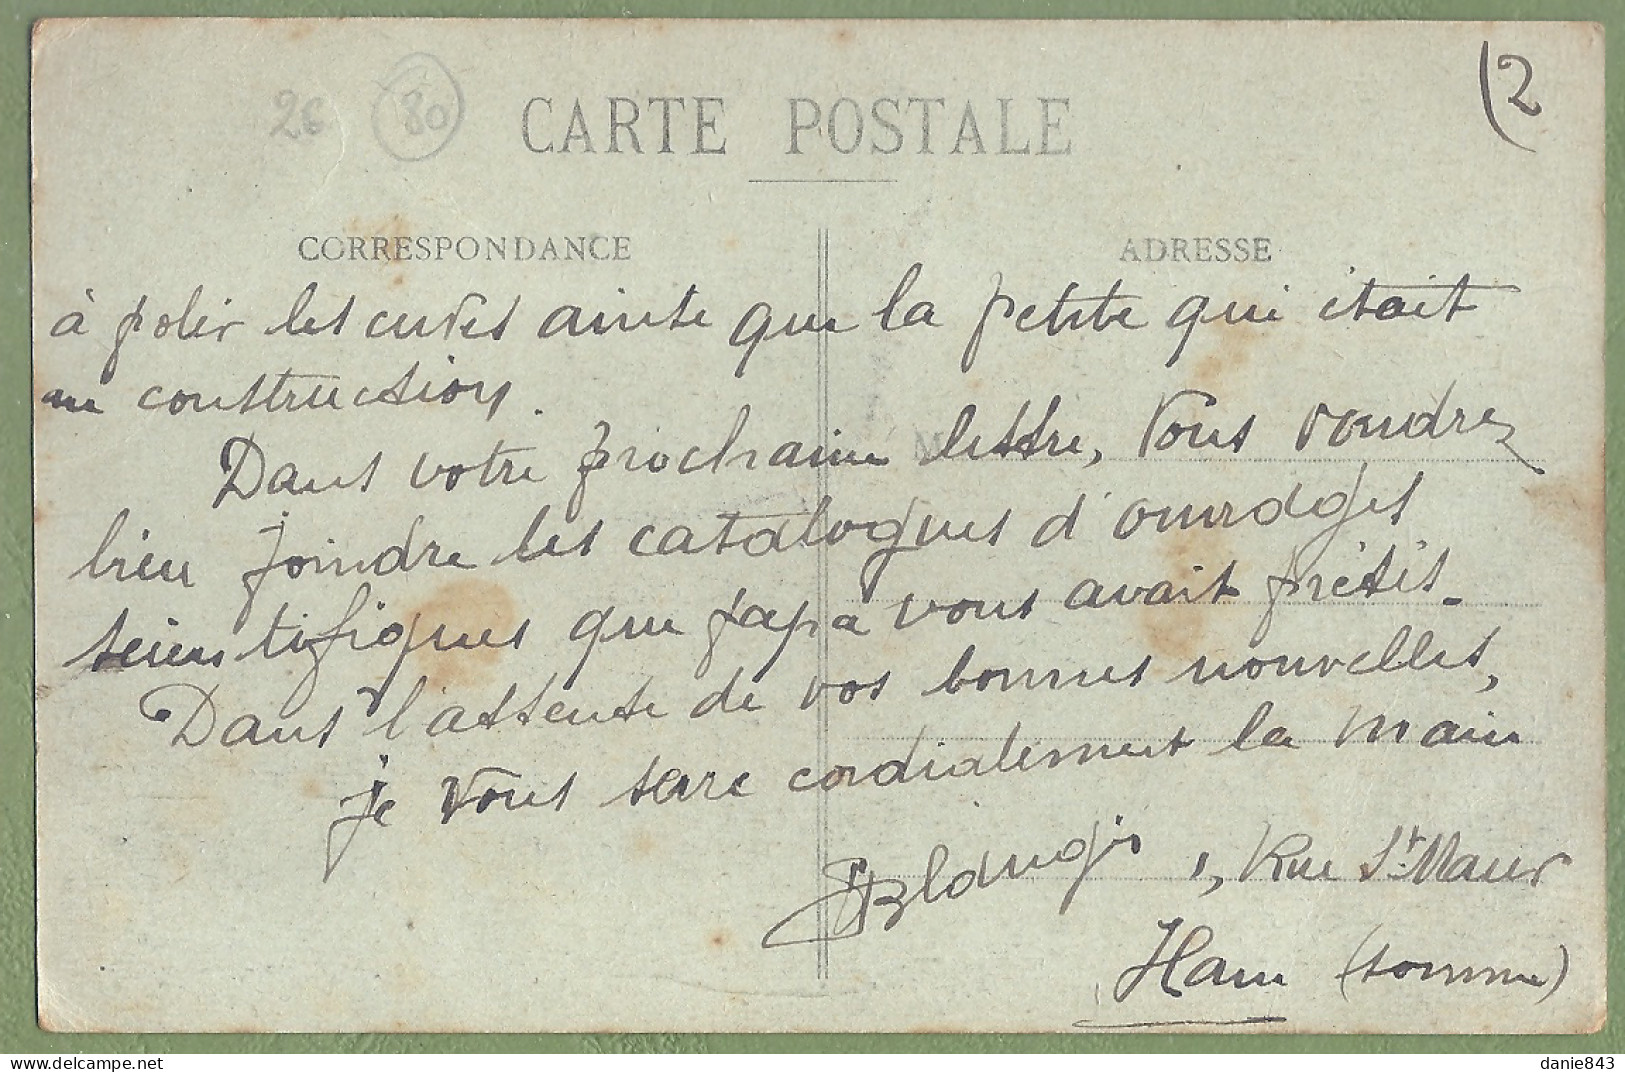 26 80
CARTE POSTALE
2
CORRESPONDANCE
ADRESSE
à polir les cuves ainsi que la petite qui était
en construction.
Dans votre prochaine lettre, Vous voudrez
bien joindre les catalogues d'ouvrages
scientifiques que papa vous avait prêtés.
Dans l'attente de vos bonnes nouvelles,
je vous serre cordialement la main
Blangis 1, Rue St Maur
Ham (Somme)
danie843